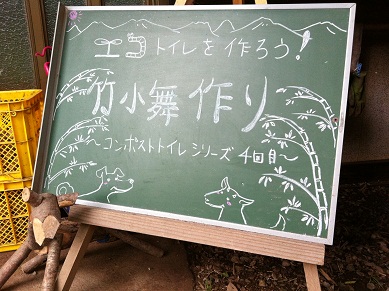 エコトイレを作ろう！
竹小舞作り
～コンポストトイレシリーズ 4回目～